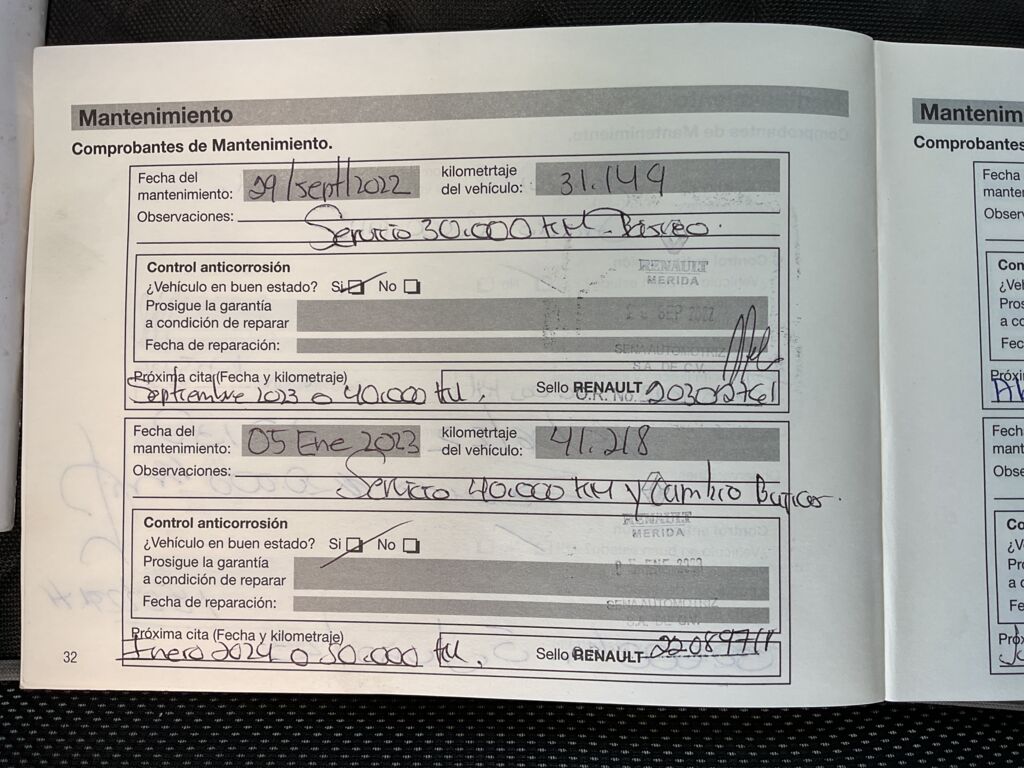 Mantenimiento
Comprobantes de Mantenimiento.
Fecha del mantenimiento: 29/sept/2022 kilometrtaje del vehículo: 31.149
Observaciones: Servicio 30.000 KM Básico.
Control anticorrosión
¿Vehículo en buen estado? Si No
RENAULT
MERIDA
Prosigue la garantía
a condición de reparar
SEP 2022
Fecha de reparación:
SENA AUTOMOTRIZ
S.A. DE C.V.
Próxima cita (Fecha y kilometraje)
Septiembre 2023 o 40.000 KM.
Sello RENAULT
O.R. No. 203012761
Fecha del mantenimiento: 05 Ene 2023 kilometrtaje del vehículo: 41.218
Observaciones: Servicio 40.000 KM y Cambio
Control anticorrosión
¿Vehículo en buen estado? Si No
RENAULT
MERIDA
Prosigue la garantía
a condición de reparar
05 ENE 2023
Fecha de reparación:
SENA AUTOMOTRIZ
S.A. DE C.V.
Próxima cita (Fecha y kilometraje)
Enero 2024 o 50.000 KM.
Sello RENAULT
32
Mantenim
Comprobantes
Fecha
mante
Obser
Con
¿Vel
Pros
a co
Fec
Próxi
Fech
mant
Obse
Co
¿V
Pro
a c
Fe
Próx